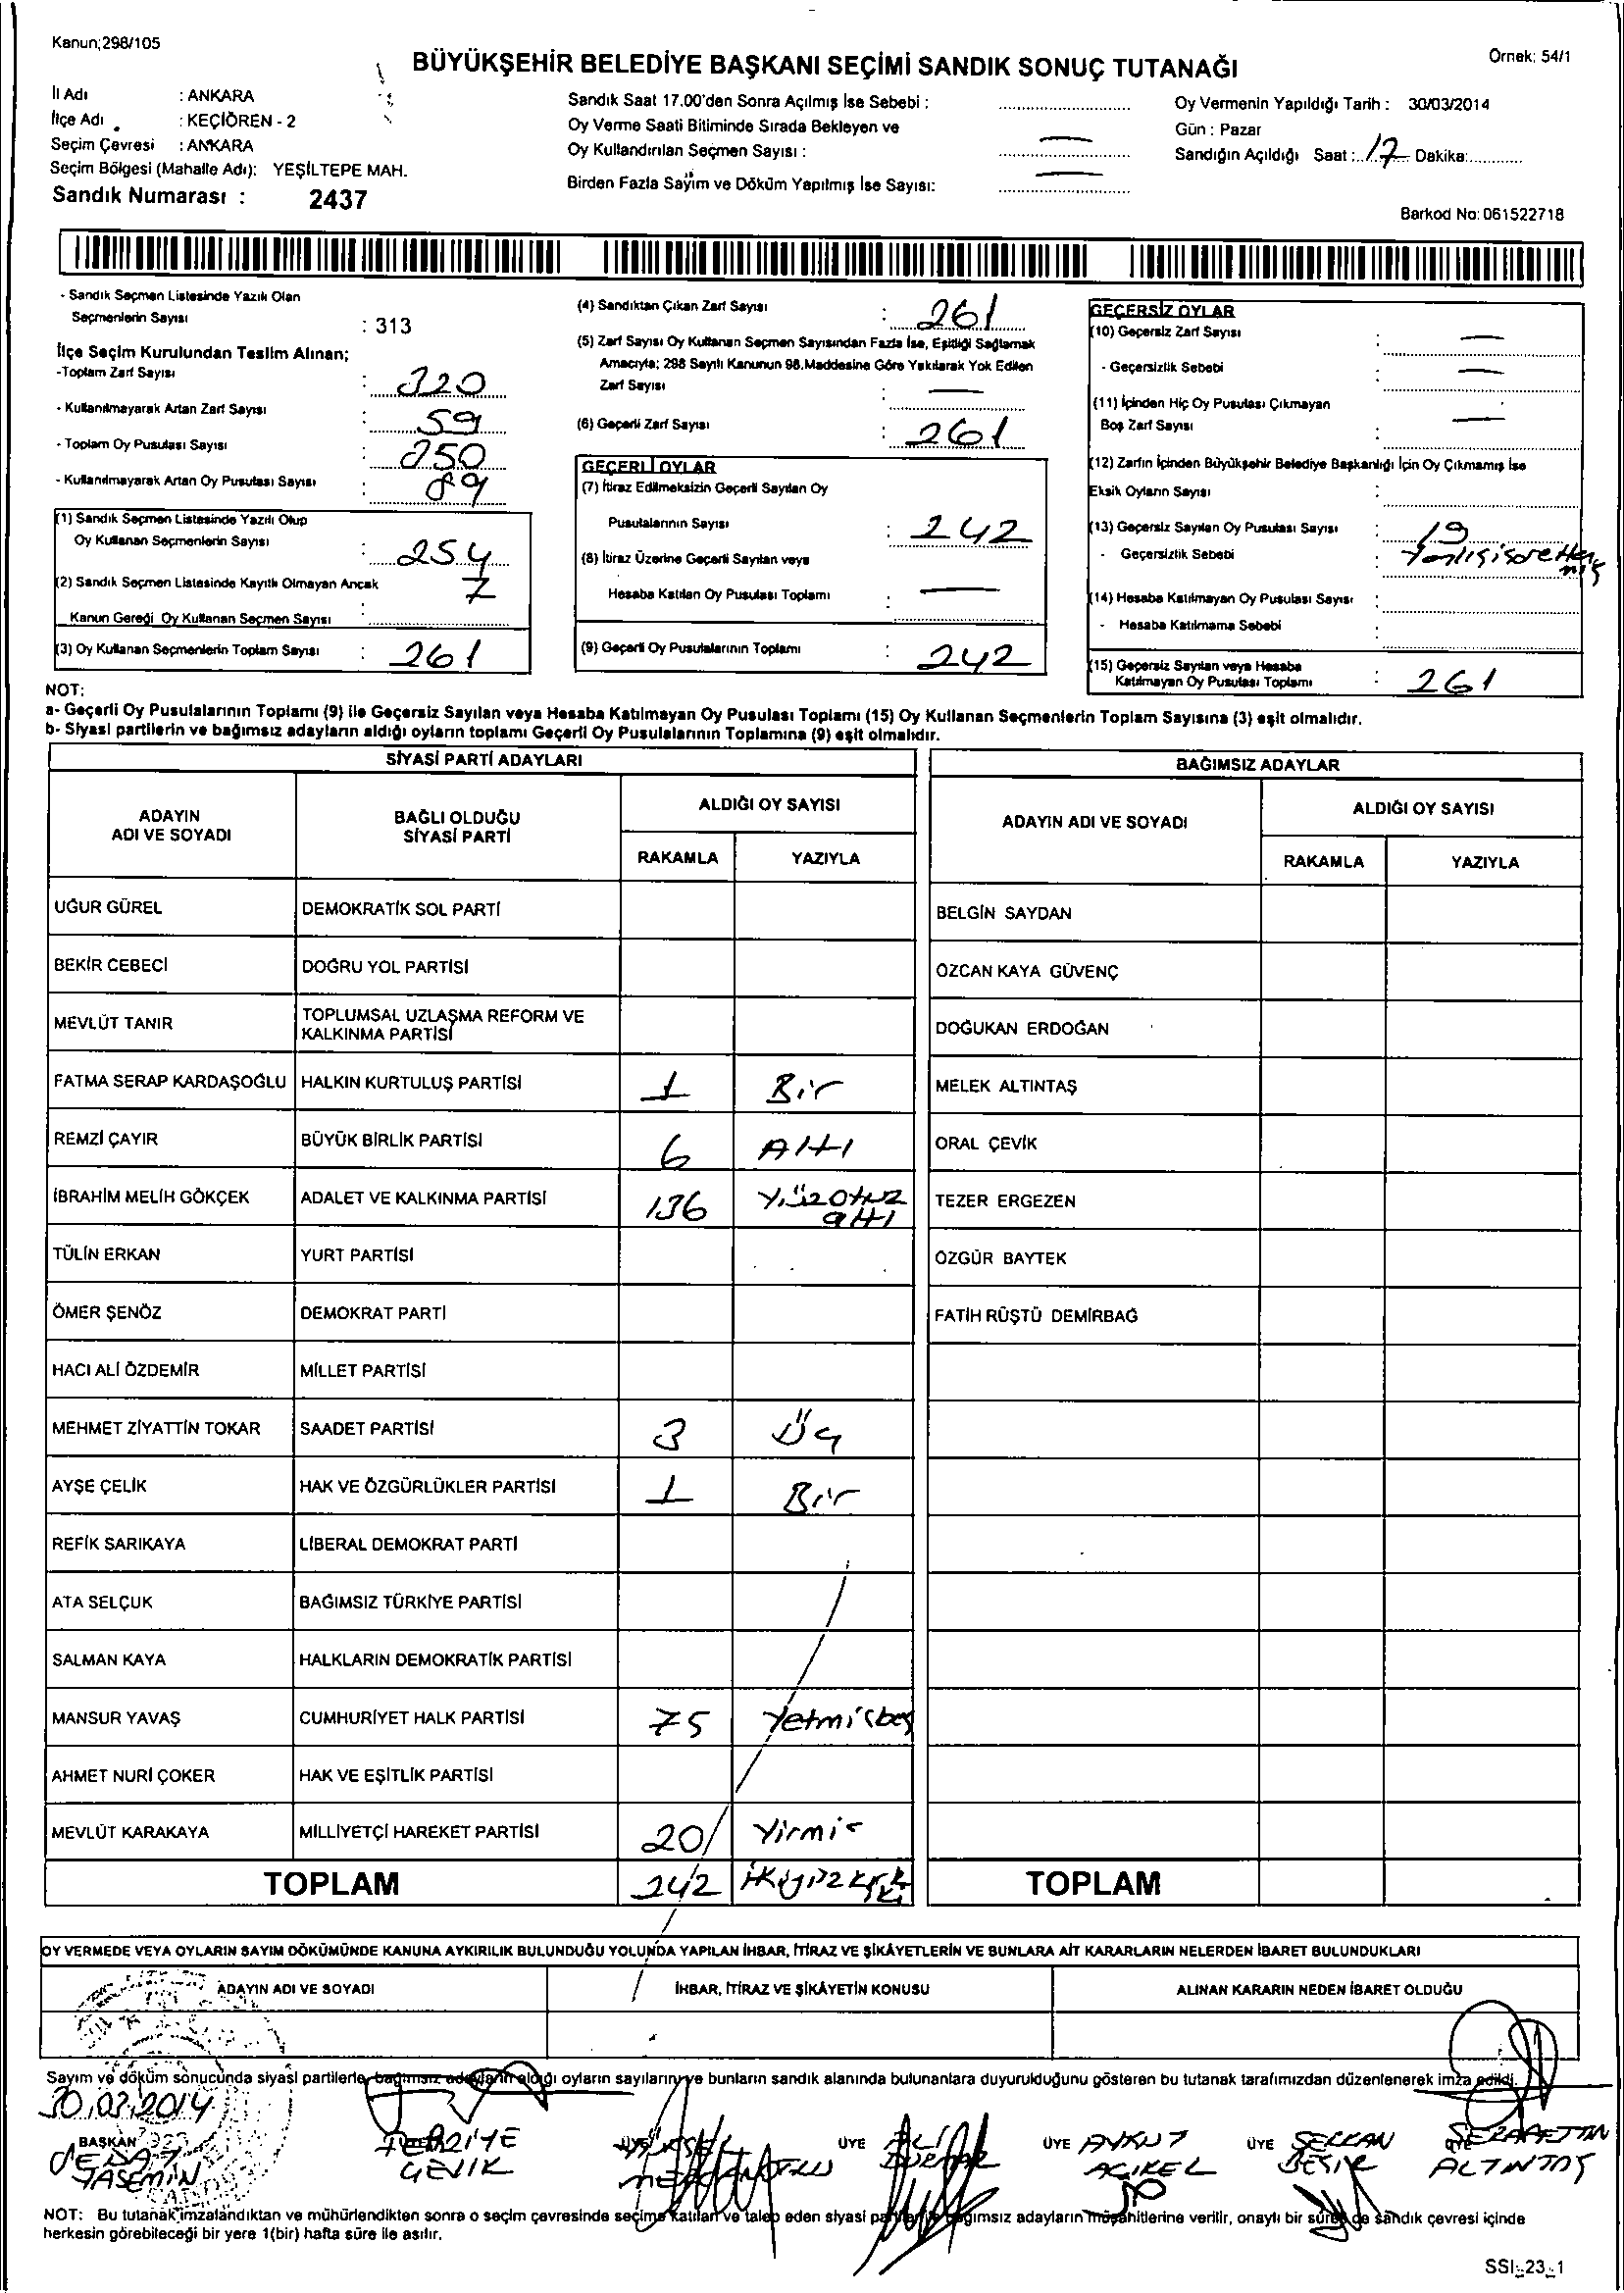 Kanun;298/105
BÜYÜKŞEHİR BELEDİYE BAŞKANI SEÇİMİ SANDIK SONUÇ TUTANAĞI
Örnek: 54/1
İl Adı : ANKARA
İlçe Adı : KEÇİÖREN - 2
Seçim Çevresi : ANKARA
Seçim Bölgesi (Mahalle Adı): YEŞİLTEPE MAH.
Sandık Numarası : 2437
Sandık Saat 17.00'den Sonra Açılmış İse Sebebi :
Oy Verme Saati Bitiminde Sırada Bekleyen ve
Oy Kullandırılan Seçmen Sayısı : —
Birden Fazla Sayim ve Döküm Yapılmış İse Sayısı: —
Oy Vermenin Yapıldığı Tarih : 30/03/2014
Gün : Pazar
Sandığın Açıldığı Saat : 17 Dakika:
Barkod No: 061522718
- Sandık Seçmen Listesinde Yazılı Olan
Seçmenlerin Sayısı : 313
İlçe Seçim Kurulundan Teslim Alınan;
-Toplam Zarf Sayısı : 320
- Kullanılmayarak Artan Zarf Sayısı : 59
- Toplam Oy Pusulası Sayısı : 350
- Kullanılmayarak Artan Oy Pusulası Sayısı : 89
(1) Sandık Seçmen Listesinde Yazılı Olup
Oy Kullanan Seçmenlerin Sayısı : 254
(2) Sandık Seçmen Listesinde Kayıtlı Olmayan Ancak
Kanun Gereği Oy Kullanan Seçmen Sayısı : 7
(3) Oy Kullanan Seçmenlerin Toplam Sayısı : 261
(4) Sandıktan Çıkan Zarf Sayısı : 261
(5) Zarf Sayısı Oy Kullanan Seçmen Sayısından Fazla İse, Eşitliği Sağlamak
Amacıyla; 298 Sayılı Kanunun 98.Maddesine Göre Yakılarak Yok Edilen
Zarf Sayısı : —
(6) Geçerli Zarf Sayısı : 261
GEÇERLİ OYLAR
(7) İtiraz Edilmeksizin Geçerli Sayılan Oy
Pusulalarının Sayısı : 242
(8) İtiraz Üzerine Geçerli Sayılan veya
Hesaba Katılan Oy Pusulası Toplamı : —
(9) Geçerli Oy Pusulalarının Toplamı : 242
GEÇERSİZ OYLAR
(10) Geçersiz Zarf Sayısı : —
- Geçersizlik Sebebi : —
(11) İçinden Hiç Oy Pusulası Çıkmayan
Boş Zarf Sayısı : —
(12) Zarfın İçinden Büyükşehir Belediye Başkanlığı İçin Oy Çıkmamış İse
Eksik Oyların Sayısı :
(13) Geçersiz Sayılan Oy Pusulası Sayısı : 19
- Geçersizlik Sebebi :
(14) Hesaba Katılmayan Oy Pusulası Sayısı :
- Hesaba Katılmama Sebebi :
(15) Geçersiz Sayılan veya Hesaba
Katılmayan Oy Pusulası Toplamı : 261
NOT:
a- Geçerli Oy Pusulalarının Toplamı (9) ile Geçersiz Sayılan veya Hesaba Katılmayan Oy Pusulası Toplamı (15) Oy Kullanan Seçmenlerin Toplam Sayısına (3) eşit olmalıdır.
b- Siyasi partilerin ve bağımsız adayların aldığı oyların toplamı Geçerli Oy Pusulalarının Toplamına (9) eşit olmalıdır.
SİYASİ PARTİ ADAYLARI
ADAYIN ADI VE SOYADI
BAĞLI OLDUĞU SİYASİ PARTİ
ALDIĞI OY SAYISI
RAKAMLA YAZIYLA
UĞUR GÜREL DEMOKRATİK SOL PARTİ
BEKİR CEBECİ DOĞRU YOL PARTİSİ
MEVLÜT TANIR TOPLUMSAL UZLAŞMA REFORM VE KALKINMA PARTİSİ
FATMA SERAP KARDAŞOĞLU HALKIN KURTULUŞ PARTİSİ 1 Bir
REMZİ ÇAYIR BÜYÜK BİRLİK PARTİSİ 6 Altı
İBRAHİM MELİH GÖKÇEK ADALET VE KALKINMA PARTİSİ 136 Yüzotuz altı
TÜLİN ERKAN YURT PARTİSİ
ÖMER ŞENÖZ DEMOKRAT PARTİ
HACI ALİ ÖZDEMİR MİLLET PARTİSİ
MEHMET ZİYATTİN TOKAR SAADET PARTİSİ 3 Üç
AYŞE ÇELİK HAK VE ÖZGÜRLÜKLER PARTİSİ 1 Bir
REFİK SARIKAYA LİBERAL DEMOKRAT PARTİ
ATA SELÇUK BAĞIMSIZ TÜRKİYE PARTİSİ
SALMAN KAYA HALKLARIN DEMOKRATİK PARTİSİ
MANSUR YAVAŞ CUMHURİYET HALK PARTİSİ 75 Yetmişbeş
AHMET NURİ ÇOKER HAK VE EŞİTLİK PARTİSİ
MEVLÜT KARAKAYA MİLLİYETÇİ HAREKET PARTİSİ 20 Yirmi
TOPLAM 242
BAĞIMSIZ ADAYLAR
ADAYIN ADI VE SOYADI
ALDIĞI OY SAYISI
RAKAMLA YAZIYLA
BELGİN SAYDAN
ÖZCAN KAYA GÜVENÇ
DOĞUKAN ERDOĞAN
MELEK ALTINTAŞ
ORAL ÇEVİK
TEZER ERGEZEN
ÖZGÜR BAYTEK
FATİH RÜŞTÜ DEMİRBAĞ
TOPLAM
OY VERMEDE VEYA OYLARIN SAYIM DÖKÜMÜNDE KANUNA AYKIRILIK BULUNDUĞU YOLUNDA YAPILAN İHBAR, İTİRAZ VE ŞİKÂYETLERİN VE BUNLARA AİT KARARLARIN NELERDEN İBARET BULUNDUKLARI
ADAYIN ADI VE SOYADI İHBAR, İTİRAZ VE ŞİKÂYETİN KONUSU ALINAN KARARIN NEDEN İBARET OLDUĞU
Sayım ve döküm sonucunda siyasi partilerle bağımsız adayların aldığı oyların sayılarını ve bunların sandık alanında bulunanlara duyurulduğunu gösteren bu tutanak tarafımızdan düzenlenerek imza edildi.
30.03.2014
BAŞKAN ÜYE ÜYE ÜYE ÜYE ÜYE
YASEMİN
ALİ
AYKUT AÇIKEL
SERKAN
ALTINTAŞ
NOT: Bu tutanak imzalandıktan ve mühürlendikten sonra o seçim çevresinde seçime katılan ve talep eden siyasi partiler ve bağımsız adayların müşahitlerine verilir, onaylı bir sureti de sandık çevresi içinde
herkesin görebileceği bir yere 1(bir) hafta süre ile asılır.
SSI_23_1